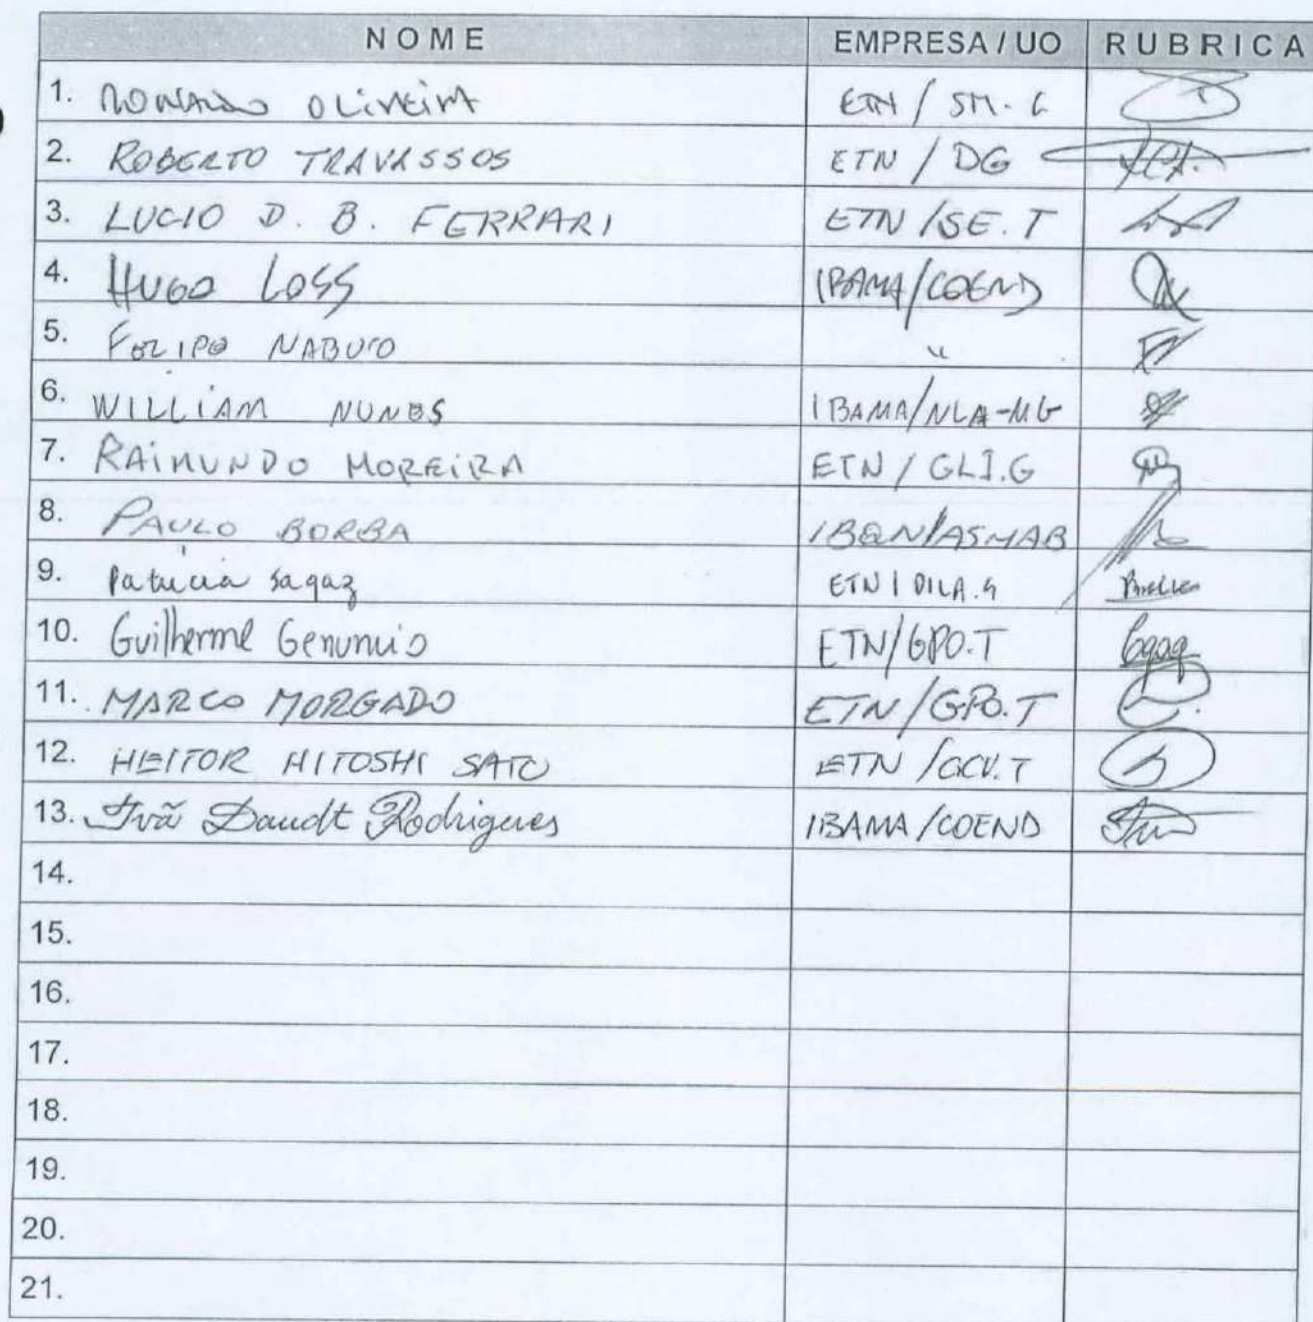 NOME EMPRESA / UO RUBRICA
1. RONALDO OLIVEIRA ETN / SM. G
2. ROBERTO TRAVASSOS ETN / DG
3. LUCIO D. B. FERRARI ETN / SE. T
4. HUGO LOSS IBAMA/COEND
5. FELIPE NABUCO "
6. WILLIAM NUNES IBAMA/NLA-MG
7. RAIMUNDO MOREIRA ETN / GLI.G
8. PAULO BORBA /ASMAB
9. Patricia Sagaz ETN / DILA.G
10. Guilherme Genuncio ETN/GPO.T
11. MARCO MORGADO ETN/GPO.T
12. HEITOR HITOSHI SATO ETN /GCV.T
13. Ivã Daudt Rodrigues IBAMA/COEND
14.
15.
16.
17.
18.
19.
20.
21.